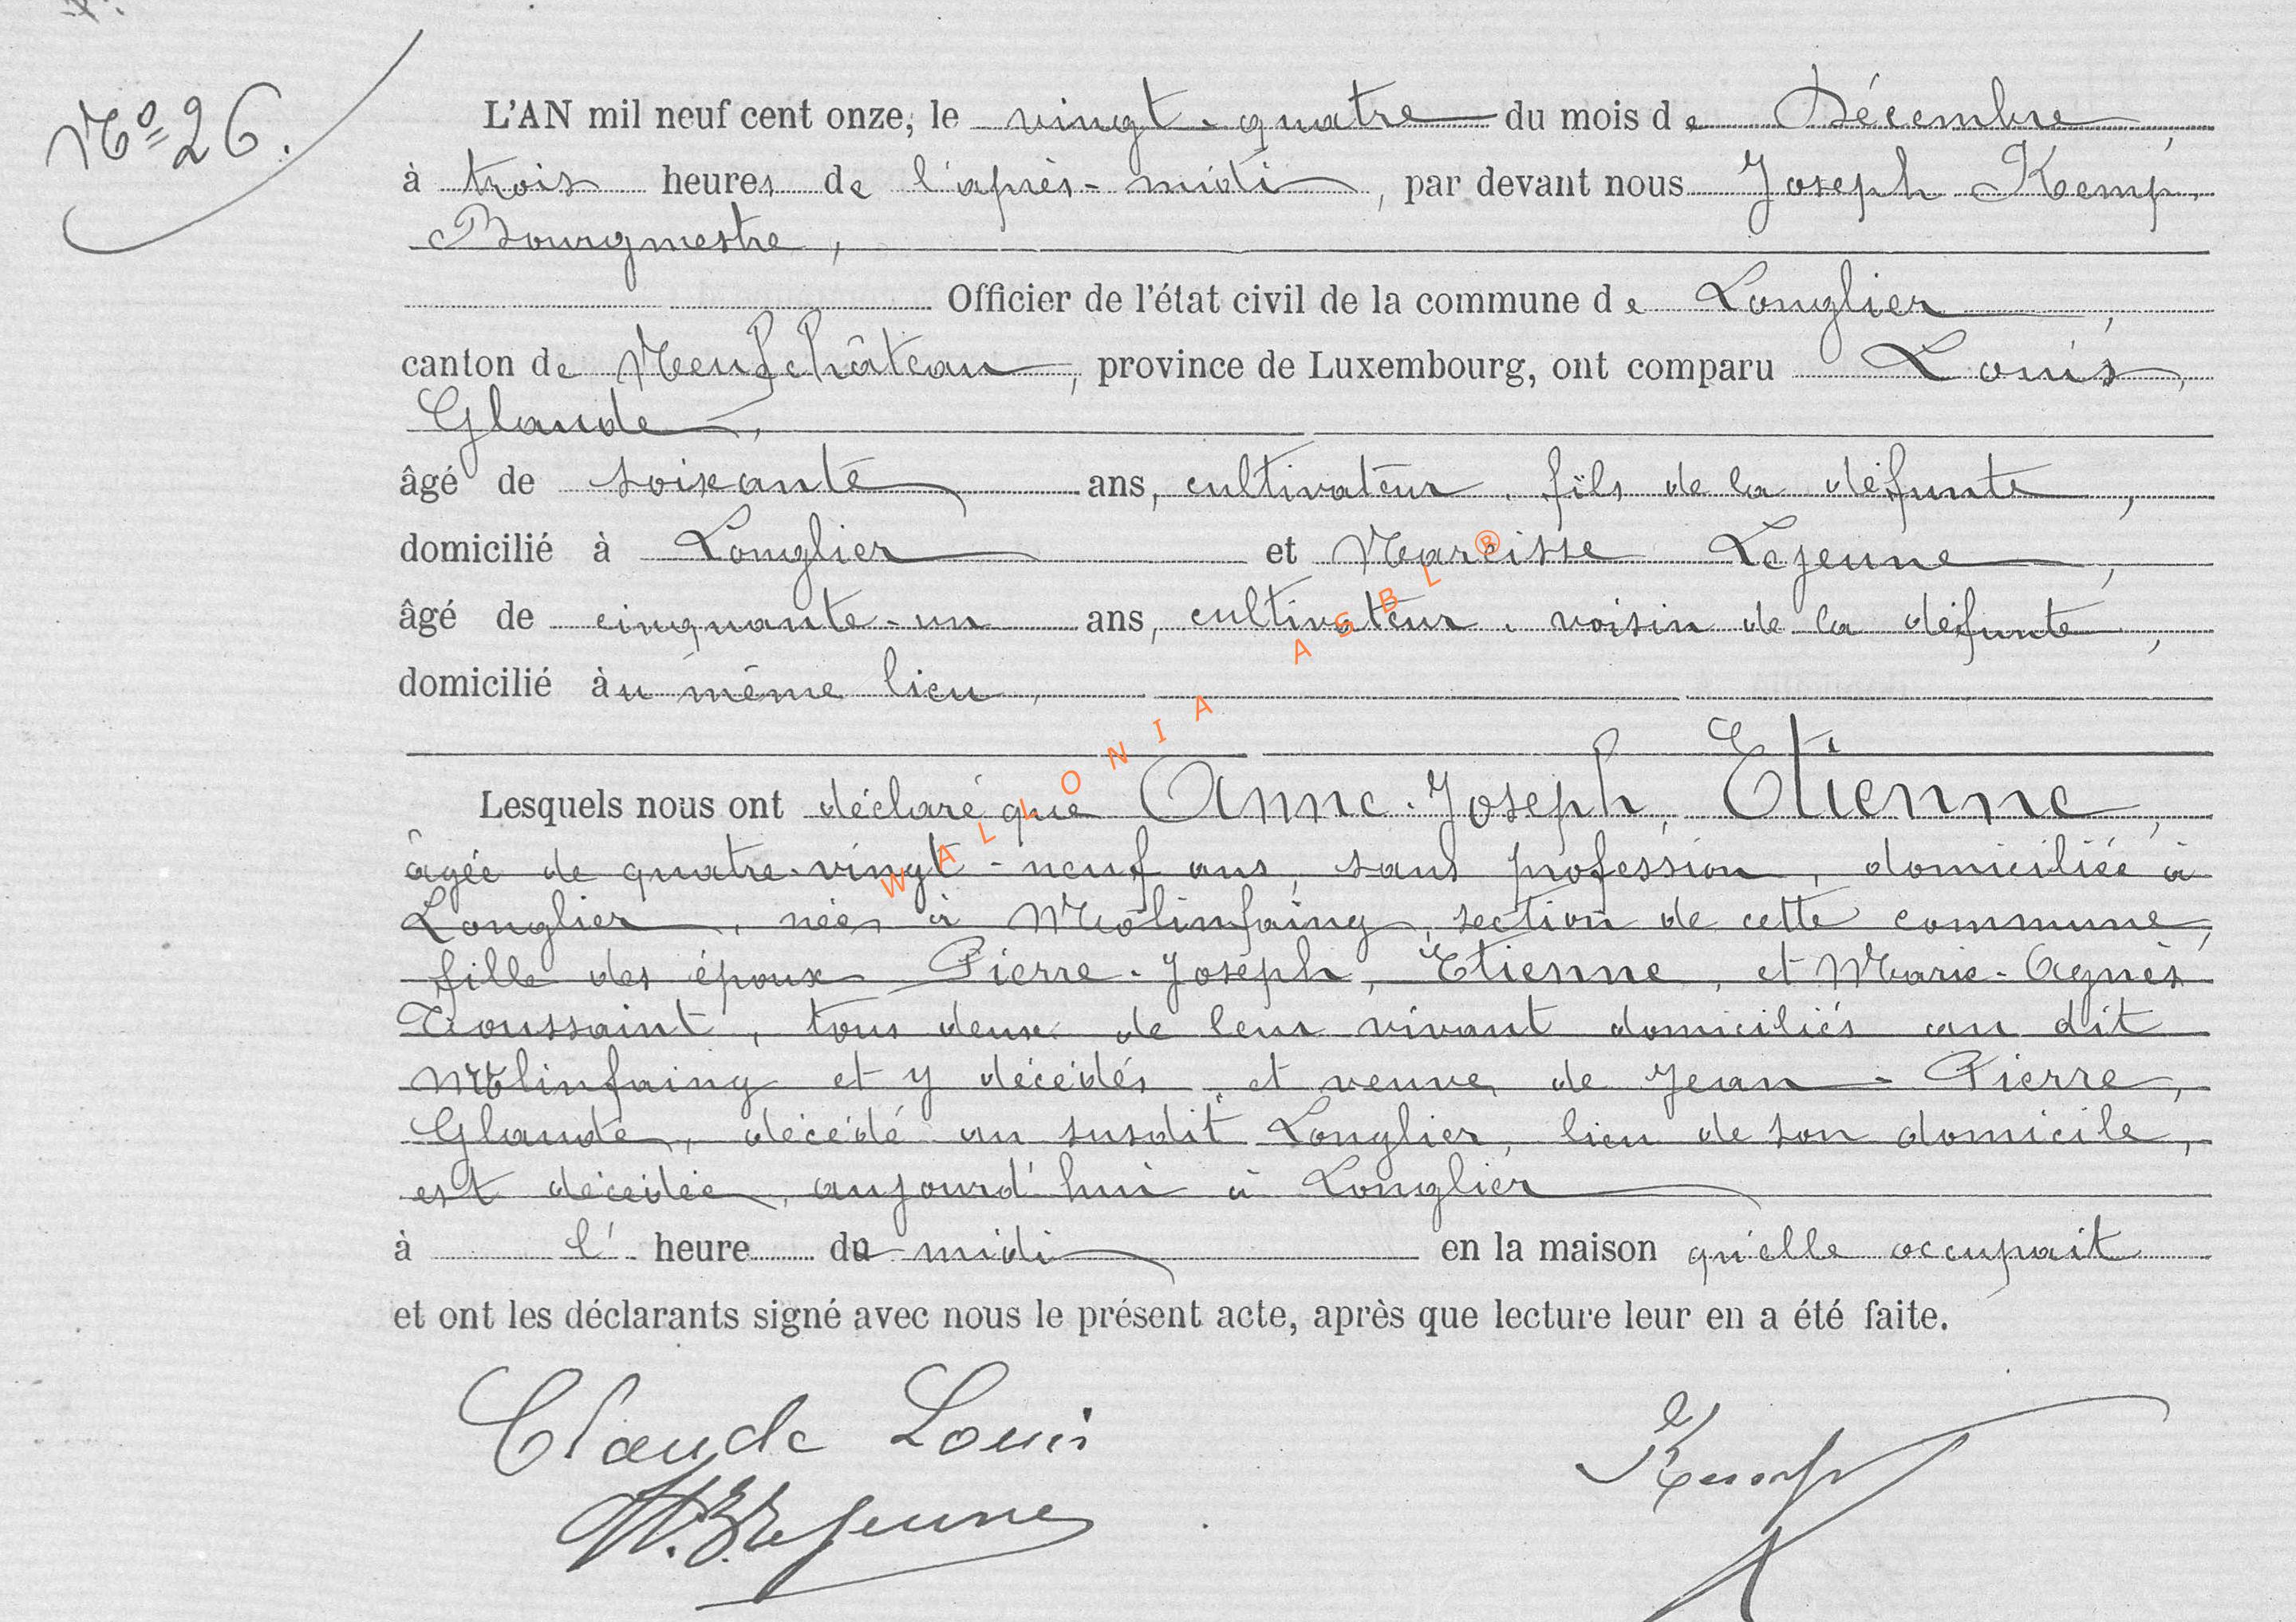 Nº 26.
L'AN mil neuf cent onze, le vingt-quatre du mois de Décembre,
à trois heures de l'après-midi, par devant nous Joseph Kemp,
Bourgmestre,
Officier de l'état civil de la commune de Longlier,
canton de Neufchâteau, province de Luxembourg, ont comparu Louis,
Glaude,
âgé de soixante ans, cultivateur, fils de la défunte,
domicilié à Longlier et Narcisse Lejeune,
âgé de cinquante-un ans, cultivateur, voisin de la défunte,
domicilié àu même lieu,
Lesquels nous ont déclaré que Anne-Joseph, Etienne,
âgée de quatre-vingt-neuf ans, sans profession, domiciliée à
Longlier, née à Molinfaing, section de cette commune,
fille des époux Pierre-Joseph, Etienne, et Marie-Agnès
Toussaint, tous deux de leur vivant domiciliés au dit
Molinfaing et y décédés, et veuve de Jean-Pierre,
Glaude, décédé au susdit Longlier, lieu de son domicile,
est décédée, aujourd'hui à Longlier
à l' heure du midi en la maison qu'elle occupait
et ont les déclarants signé avec nous le présent acte, après que lecture leur en a été faite.
Claude Louis
Kemp
N.J. Lejeune
WALLONIA ASBL ®